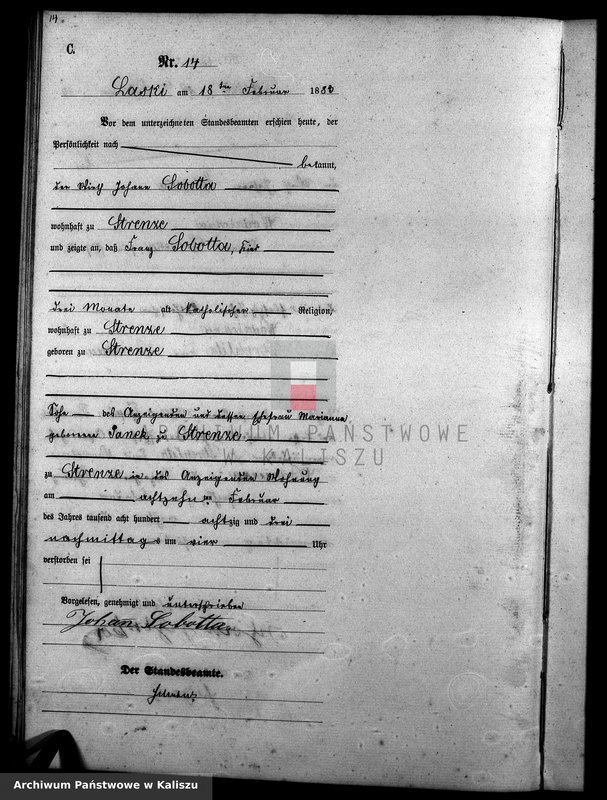 14
C.
Nr. 14
Laski am 18ten Februar 1883
Vor dem unterzeichneten Standesbeamten erschien heute, der
Persönlichkeit nach
bekannt,
der Wirth Johann Sobotta
wohnhaft zu Strenze
und zeigte an, daß Franz Sobotta, Kind
drei Monate alt katholischer Religion,
wohnhaft zu Strenze
geboren zu Strenze
Sohn des Anzeigenden und dessen Ehefrau Marianna
geborenen Janek, zu Strenze
ARCHIWUM PAŃSTWOWE
W KALISZU
zu Strenze in des Anzeigenden Wohnung
am achtzehnten Februar
des Jahres tausend acht hundert achtzig und drei
nachmittags um vier Uhr
verstorben sei
Vorgelesen, genehmigt und unterschrieben
Johan Sobotta
Der Standesbeamte.
Archiwum Państwowe w Kaliszu